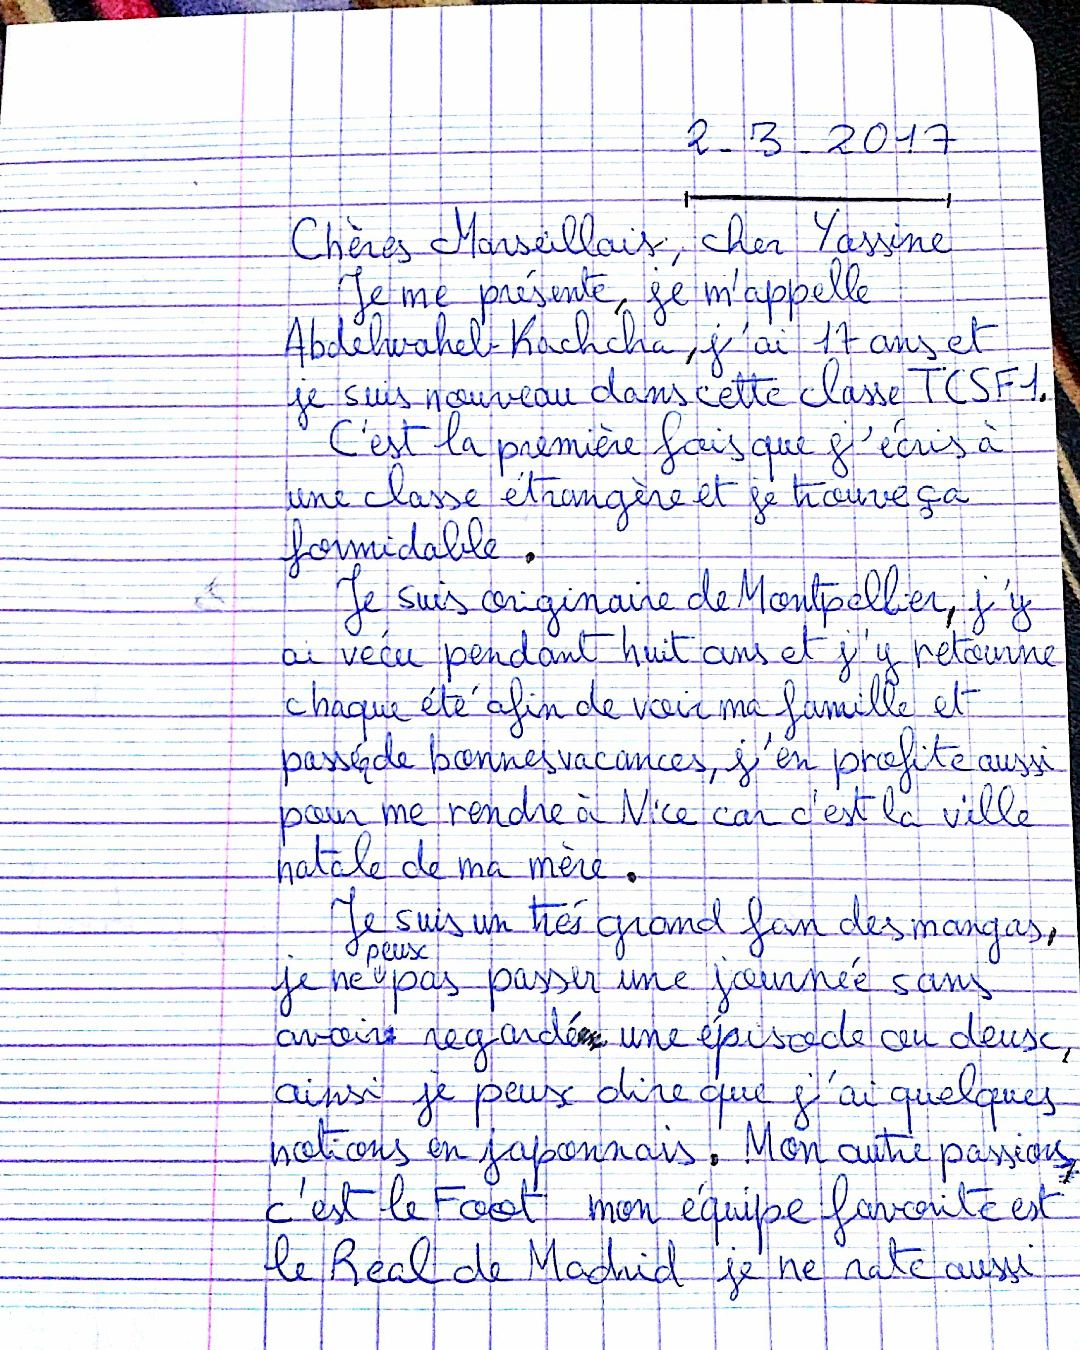 2_3_2017
Chères Marseillais, cher Yassine
Je me présente, je m'appelle
Abdelwaheb Kachcha, j'ai 17 ans et
je suis nouveau dans cette classe TCSF1.
C'est la première fois que j'écris à
une classe étrangère et je trouve ça
formidable.
Je suis originaire de Montpellier, j'y
ai vécu pendant huit ans et j'y retourne
chaque été afin de voir ma famille et
passé de bonnes vacances, j'en profite aussi
pour me rendre à Nice car c'est la ville
natale de ma mère.
Je suis un trés grand fan des mangas,
je ne peux pas passer une journée sans
avoir regardé une épisode ou deux,
ainsi je peux dire que j'ai quelques
notions en japonnais. Mon autre passion,
c'est le Foot mon équipe favorite est
le Real de Madrid je ne rate aussi